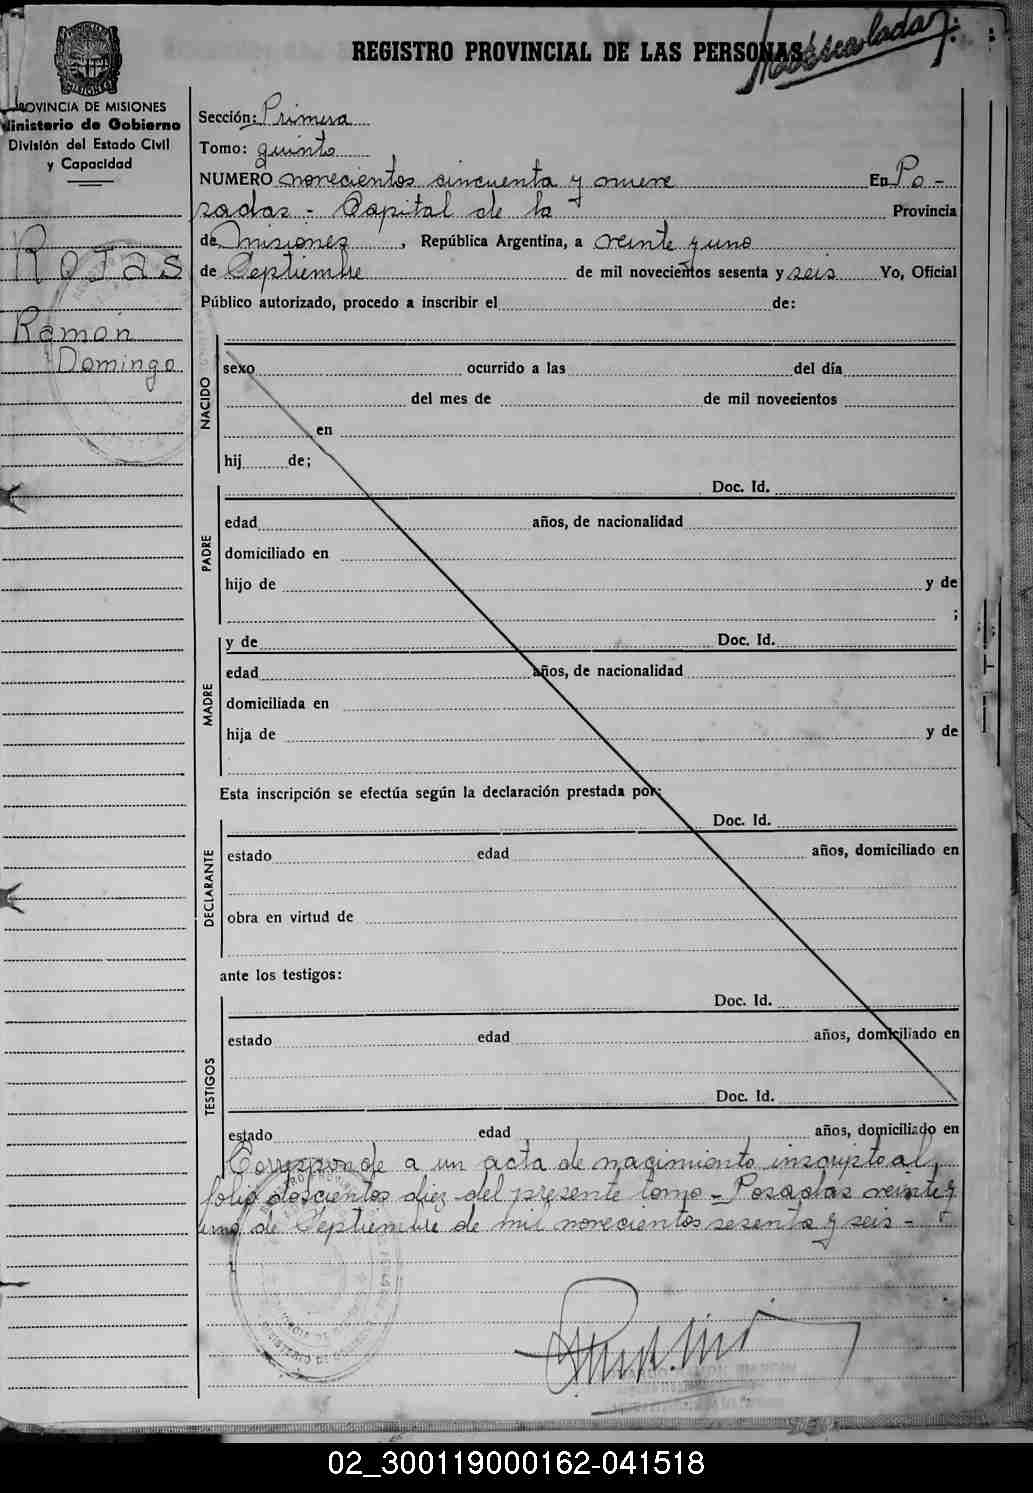 REGISTRO PROVINCIAL DE LAS PERSONAS
PROVINCIA DE MISIONES
Ministerio de Gobierno
División del Estado Civil
y Capacidad
Rojas
Ramón
Domingo
Sección: Primera
Tomo: quinto
NUMERO novecientos cincuenta y nueve En Po -
sadas - Capital de la Provincia
de Misiones, República Argentina, a veinte y uno
de Septiembre de mil novecientos sesenta y seis Yo, Oficial
Público autorizado, procedo a inscribir el de:
NACIDO
sexo ocurrido a las del día
del mes de de mil novecientos
en
hij de;
PADRE
Doc. Id.
edad años, de nacionalidad
domiciliado en
hijo de y de
;
MADRE
y de Doc. Id.
edad años, de nacionalidad
domiciliada en
hija de y de
Esta inscripción se efectúa según la declaración prestada por:
DECLARANTE
Doc. Id.
estado edad años, domiciliado en
obra en virtud de
ante los testigos:
TESTIGOS
Doc. Id.
estado edad años, domiciliado en
Doc. Id.
estado edad años, domiciliado en
Corresponde a un acta de nacimiento inscripto al
folio doscientos diez del presente tomo - Posadas veinte y
uno de Septiembre de mil novecientos sesenta y seis -
02_300119000162-041518